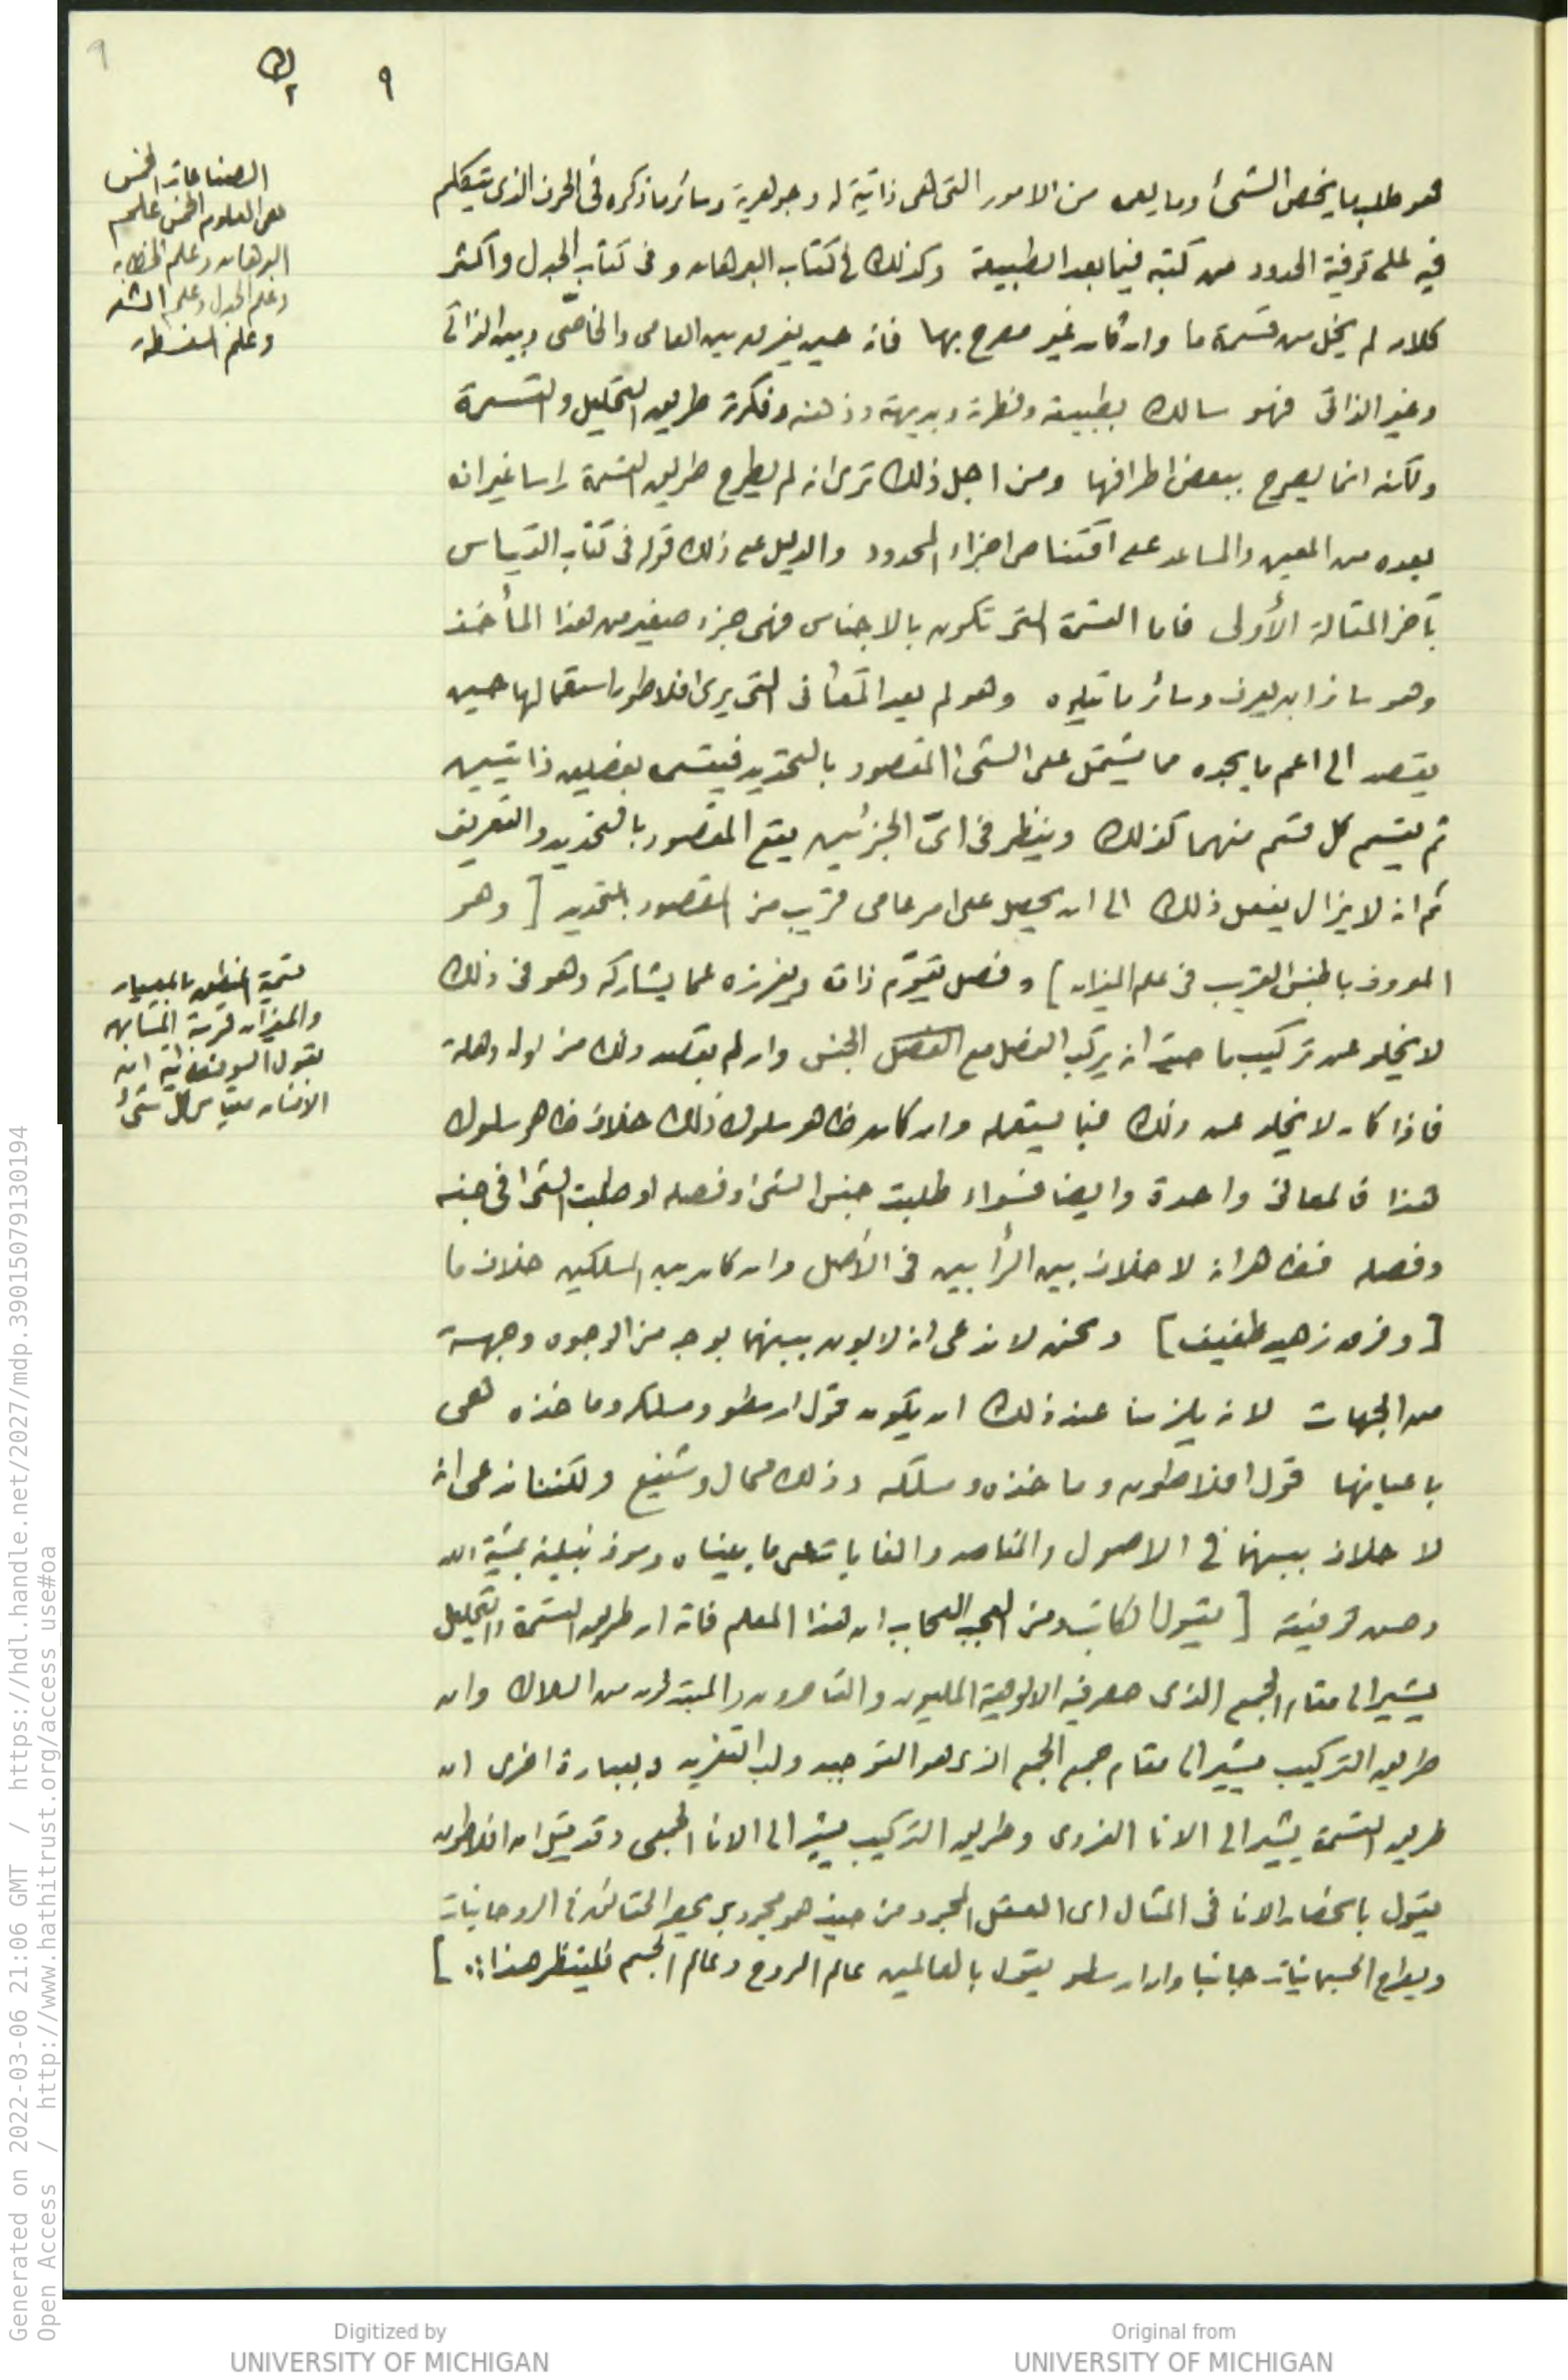 ٩
٩
هو طلب ما يخص الشئ وما يعمه من الامور التى هى ذاتية له وجوهرية وسائر ما ذكره فى الحرف الذى يتكلم
فيه على توفية الحدود من كتبه فيما بعد الطبيعة وكذلك فى كتاب البرهان وفى كتاب الجدل واكثر
كلامه لم يخل من قسمة ما وان كان غير مصرح بها فانه حين يفرق بين العامى والخاصّى وبين الذاتى
وغير الذاتى فهو سالك بطبيعته وفطرته وبديهته وذهنه وفكرته طريق التحليل والقسمة
ولكنه انما يصرح ببعض اطرافها ومن اجل ذلك ترى انه لم يطرح طريق القسمة راسا غير انه
يعده من المعين والمساعد على اقتناص اجزاء المحدود والدليل على ذلك قوله فى كتاب القياس
بآخر المقالة الأولى فاما القسمة التى تكون بالاجناس فهى جزء صغير من هذا المأخذ
وهو سائر ان يعرف وسائر ما تليه وهو لم يعد المعانى التى يرى افلاطون استعمالها حين
يقصد الى اعم ما يجده مما يشتمل على الشئ المقصود بالتحديد فيقسمه بفصلين ذاتيين
ثم يقسم كل قسم منهما كذلك وينظر فى اىّ الجزئين يقع المقصود بالتحديد والتعريف
ثم انه لا يزال يفعل ذلك الى ان يحصل على امر عامى قريب من المقصود بالتحديد [ وهو
المعروف بالجنس القريب فى علم الميزان ] وفصل يقوّم ذاته ويفرزه عما يشاركه وهو فى ذلك
لا يخلو عن تركيب ما حيث انه يركب الفصل مع الفصل الجنس وان لم يقصد ذلك من اول وهلة
فاذا كان لا يخلو عن ذلك فيما يستعمله وان كان ظاهر سلوك ذلك خلاف ظاهر سلوك
هذا فالمعانى واحدة وايضا فسواء طلبت جنس الشئ وفصله او طلبت الشئ فى جنسه
وفصله فظاهر انه لا خلاف بين الرأيين فى الأصل وان كان بين المسلكين خلاف ما
[ وفرق زهيد طفيف ] ونحن لا ندعى انه لا بون بينهما بوجه من الوجوه وجهة
من الجهات لانه يلزمنا عند ذلك ان يكون قول ارسطو ومسلكه وماخذه هى
باعيانها قول افلاطون وماخذه ومسلكه وذلك محال وشنيع ولكننا ندعى انه
لا خلاف بينهما فى الاصول والمقاصد والغايات على ما بيناه وسوف نبينه بمشيئة الله
وحسن توفيقه [ يقول الكاتب ومن العجب العجاب ان هذا المعلم فاته ان طريق القسمة والتحليل
يشير الى مقام الجمع الذى حصر فيه الالوهية المليون والقاصرون والمبتدئون من السلاك وان
طريق التركيب يشير الى مقام جمع الجمع الذى هو التوحيد ولب التفريد وبعبارة اخرى ان
طريق القسمة يشير الى الانا الفردى وطريق التركيب يشير الى الانا الجمعى وقد قيل ان افلاطون
يقول بانحصار الانا فى المثال اى العقل المجرد من حيث هو مجرد يحصر الحقائق فى الروحانيات
ويطرح الجسمانيات جانبا وان ارسطو يقول بالعالمين عالم الروح وعالم الجسم فلينظر هذا ]
الصناعات الخمس
هى العلوم الخمس علم
البرهان وعلم الخطابه
وعلم الجدل وعلم الشعر
وعلم السفسطة
تسمية المنطق بالمعيار
والميزان قريبة المشابه
لقول السوفسطائية ان
الانسان مقياس كل شئ
Generated on 2022-03-06 21:06 GMT / https://hdl.handle.net/2027/mdp.39015079130194
Open Access / http://www.hathitrust.org/access_use#oa
Digitized by
UNIVERSITY OF MICHIGAN
Original from
UNIVERSITY OF MICHIGAN